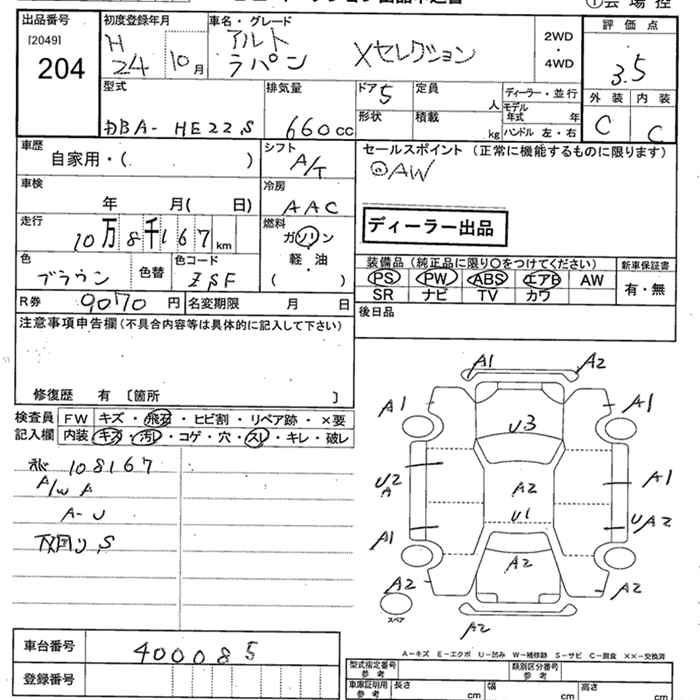 ①会場控
出品番号
[2049]
204
初度登録年月
H
24 10月
車名・グレード
アルト
ラパン Xセレクション
2WD
・
4WD
評価点
3.5
外装 内装
C C
型式
DBA-HE22S
排気量
660cc
ドア 5
形状
定員
人
積載
kg
ディーラー・並行
モデル
年式 年
ハンドル 左・右
車歴
自家用・( )
シフト
A/T
車検
年 月( 日)
冷房
AAC
走行
10万8千167km
燃料
ガソリン
軽・油
( )
色
ブラウン
色替
色コード
ZSF
R券 9070円
名変期限 月 日
セールスポイント(正常に機能するものに限ります)
◎AW
ディーラー出品
装備品(純正品に限り〇をつけてください)
新車保証書
PS PW ABS エアB AW
SR ナビ TV カワ
有・無
後日品
注意事項申告欄(不具合内容等は具体的に記入して下さい)
修復歴 有 〔箇所 〕
検査員
記入欄
FW キズ・飛石・ヒビ割・リペア跡・×要
内装 キズ・汚レ・コゲ・穴・スレ・キレ・破レ
108167
A/W A
A-U
下回り S
A1 A2
A1 A1
U3
U2
A
A2
A1
U1
UA2
A1
A2
A2 A2
スペア
A2
A-キズ E-エクボ U-凹み W-補修跡 S-サビ C-腐食 ××-交換済
車台番号 400085
登録番号
型式指定番号
参考
類別区分番号
参考
車庫証明用
参考
長さ cm
幅 cm
高さ cm